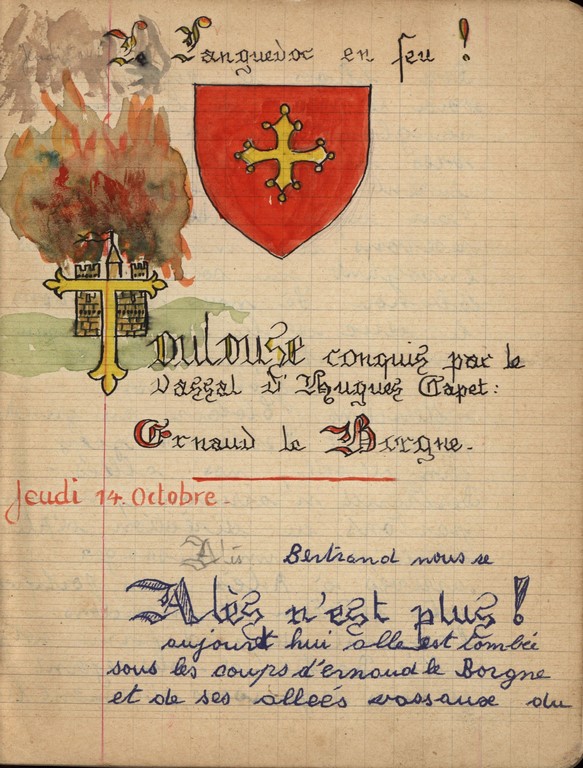 Le Languedoc en feu !
Toulouse conquis par le
vassal d'Hugues Capet:
Ernaud le Borgne.
Jeudi 14. Octobre.
Alès
Bertrand nous se
Alès n'est plus !
aujourd hui alle est tombée
sous les coups d'ernaud le Borgne
et de ses alleés vassaux du